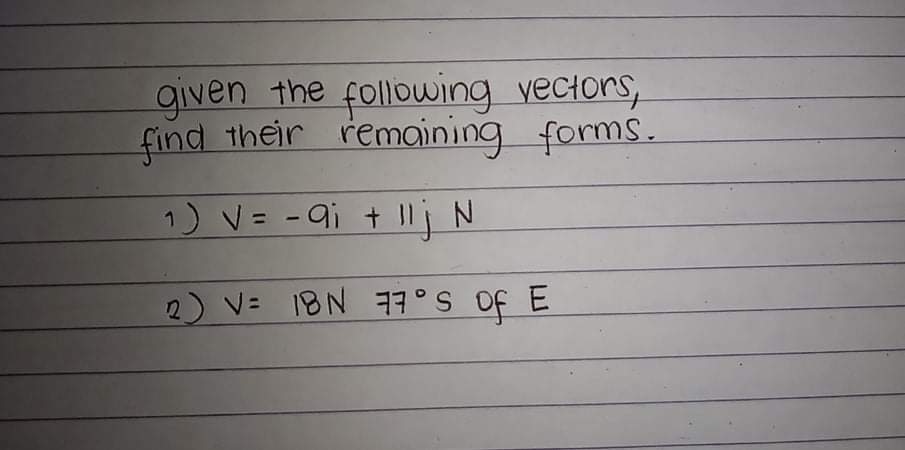 given the following vectors,
find their remaining forms.
1) V = -9i + 11j N
2) V= 18N 77° S Of E